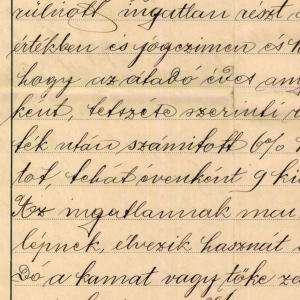 rülnött ingatlan részt
értékben és jogczimen és
hogy az átadó éves
ként, tetszése szerinti
ték után számitott 6%
tot, tehát évenként 9
Az ingatlannak mai
lépnek, élvezik hasznát
dó a kamat vagy tőke